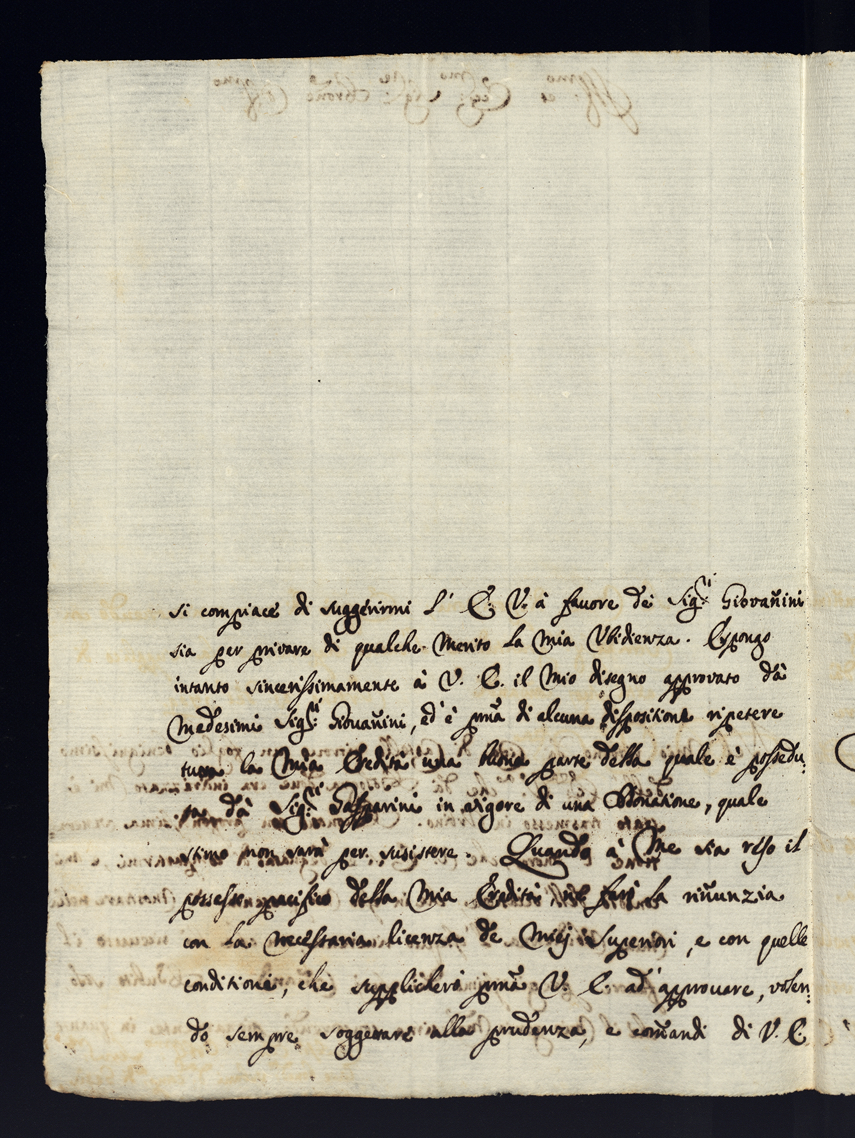 si compiacè di suggerirmi l' E. V. à favore dei Sig.ri Giovañini
sia per privare di qualche Merito la Mia Vbidienza. Espongo
intanto sincerissimamente à V. E. il Mio disegno approvato dà
Medesimi Sig.ri Giovañini, ed' è pñia di alcuna dispositione ripetere
tutta la Mia Eredità una buona parte della quale è possedu:
ta dà Sig.ri Gasparini in vigore di una donatione, quale
stimo non sarà per susistere. Quando à Me sia reso il
possesso pacifico della Mia Eredità farò la riñunzia
con la necessaria licenza de Miej Superiori, e con quelle
conditioni, che supplicherò pñia V. E. ad' approvare, volen:
do sempre soggettare alla prudenza, e comandi di V. E.